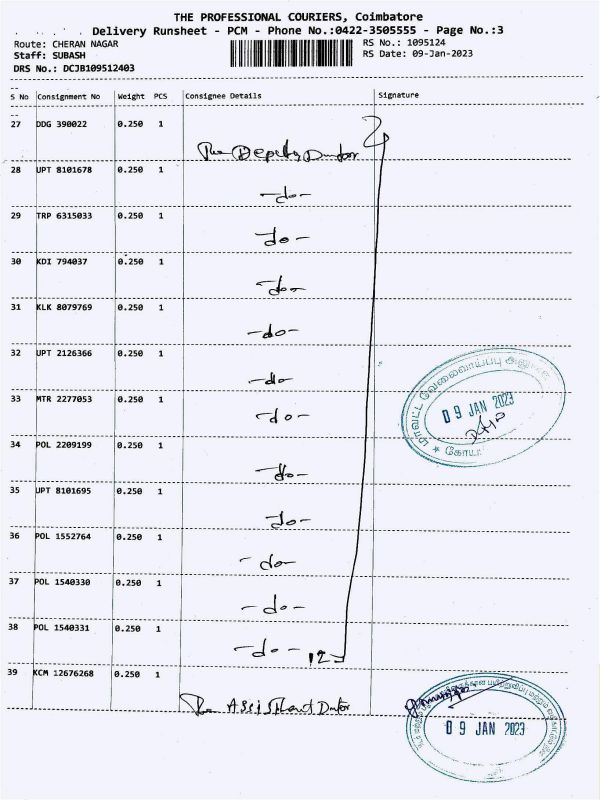 THE PROFESSIONAL COURIERS, Coimbatore
Delivery Runsheet - PCM - Phone No.:0422-3505555 - Page No.:3
Route: CHERAN NAGAR
RS No.: 1095124
Staff: SUBASH
RS Date: 09-Jan-2023
DRS No.: DCJB109512403
S No Consignment No Weight PCS Consignee Details Signature
27 DDG 390022 0.250 1
The Deputy Director
28 UPT 8101678 0.250 1
-do-
29 TRP 6315033 0.250 1
-do-
30 KDI 794037 0.250 1
-do-
31 KLK 8079769 0.250 1
-do-
32 UPT 2126366 0.250 1
-do-
33 MTR 2277053 0.250 1
-do-
34 POL 2209199 0.250 1
-do-
35 UPT 8101695 0.250 1
-do-
36 POL 1552764 0.250 1
-do-
37 POL 1540330 0.250 1
-do-
38 POL 1540331 0.250 1
-do- 12
39 KCM 12676268 0.250 1
The Assistant Director
மாவட்ட வேலைவாய்ப்பு
09 JAN 2023
09 JAN 2023